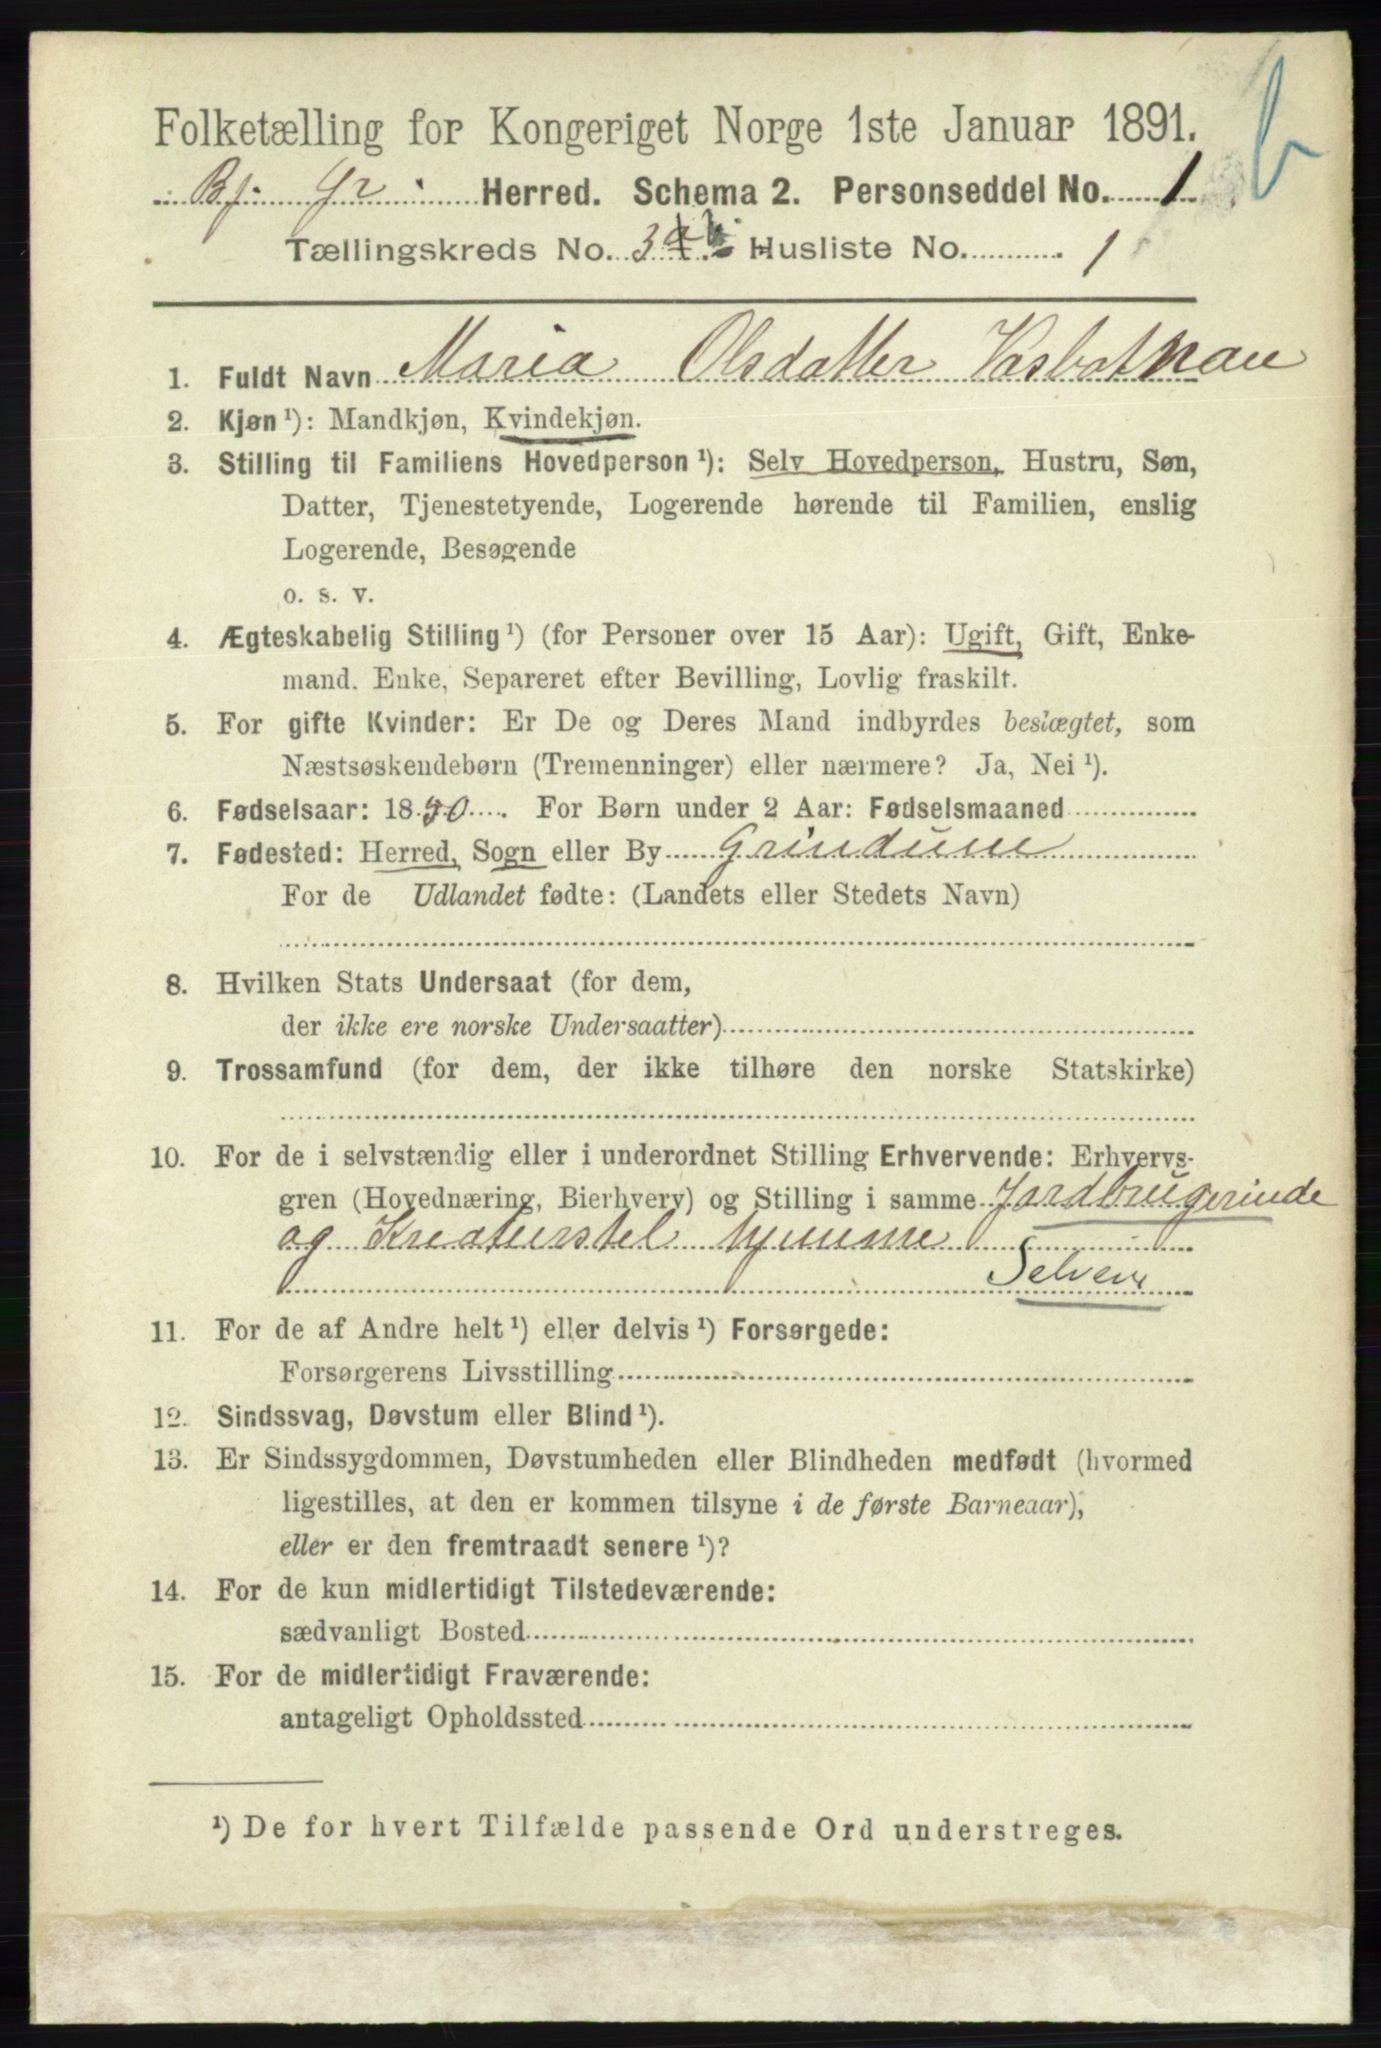 Folketælling for Kongeriget Norge 1ste Januar 1891.
Bj. Gr. Herred. Schema 2. Personseddel No. 1
Tællingskreds No. 3 Husliste No. 1
b
1. Fuldt Navn Maria Olsdatter Vasbotnan
2. Kjøn ¹): Mandkjøn, Kvindekjøn.
3. Stilling til Familiens Hovedperson ¹): Selv Hovedperson, Hustru, Søn,
Datter, Tjenestetyende, Logerende hørende til Familien, enslig
Logerende, Besøgende
o. s. v.
4. Ægteskabelig Stilling ¹) (for Personer over 15 Aar): Ugift, Gift, Enke-
mand. Enke, Separeret efter Bevilling, Lovlig fraskilt.
5. For gifte Kvinder: Er De og Deres Mand indbyrdes beslægtet, som
Næstsøskendebørn (Tremenninger) eller nærmere? Ja, Nei ¹).
6. Fødselsaar: 18 . For Børn under 2 Aar: Fødselsmaaned
7. Fødested: Herred, Sogn eller By Grindum
For de Udlandet fødte: (Landets eller Stedets Navn)
8. Hvilken Stats Undersaat (for dem,
der ikke ere norske Undersaatter)
9. Trossamfund (for dem, der ikke tilhøre den norske Statskirke)
10. For de i selvstændig eller i underordnet Stilling Erhvervende: Erhvervs-
gren (Hovednæring, Bierhverv) og Stilling i samme Jordbrugerinde
og Kreaturstel hjemme
Selveier
11. For de af Andre helt ¹) eller delvis ¹) Forsørgede:
Forsørgerens Livsstilling
12. Sindssvag, Døvstum eller Blind ¹).
13. Er Sindssygdommen, Døvstumheden eller Blindheden medfødt (hvormed
ligestilles, at den er kommen tilsyne i de første Barneaar),
eller er den fremtraadt senere ¹)?
14. For de kun midlertidigt Tilstedeværende:
sædvanligt Bosted
15. For de midlertidigt Fraværende:
antageligt Opholdssted
¹) De for hvert Tilfælde passende Ord understreges.